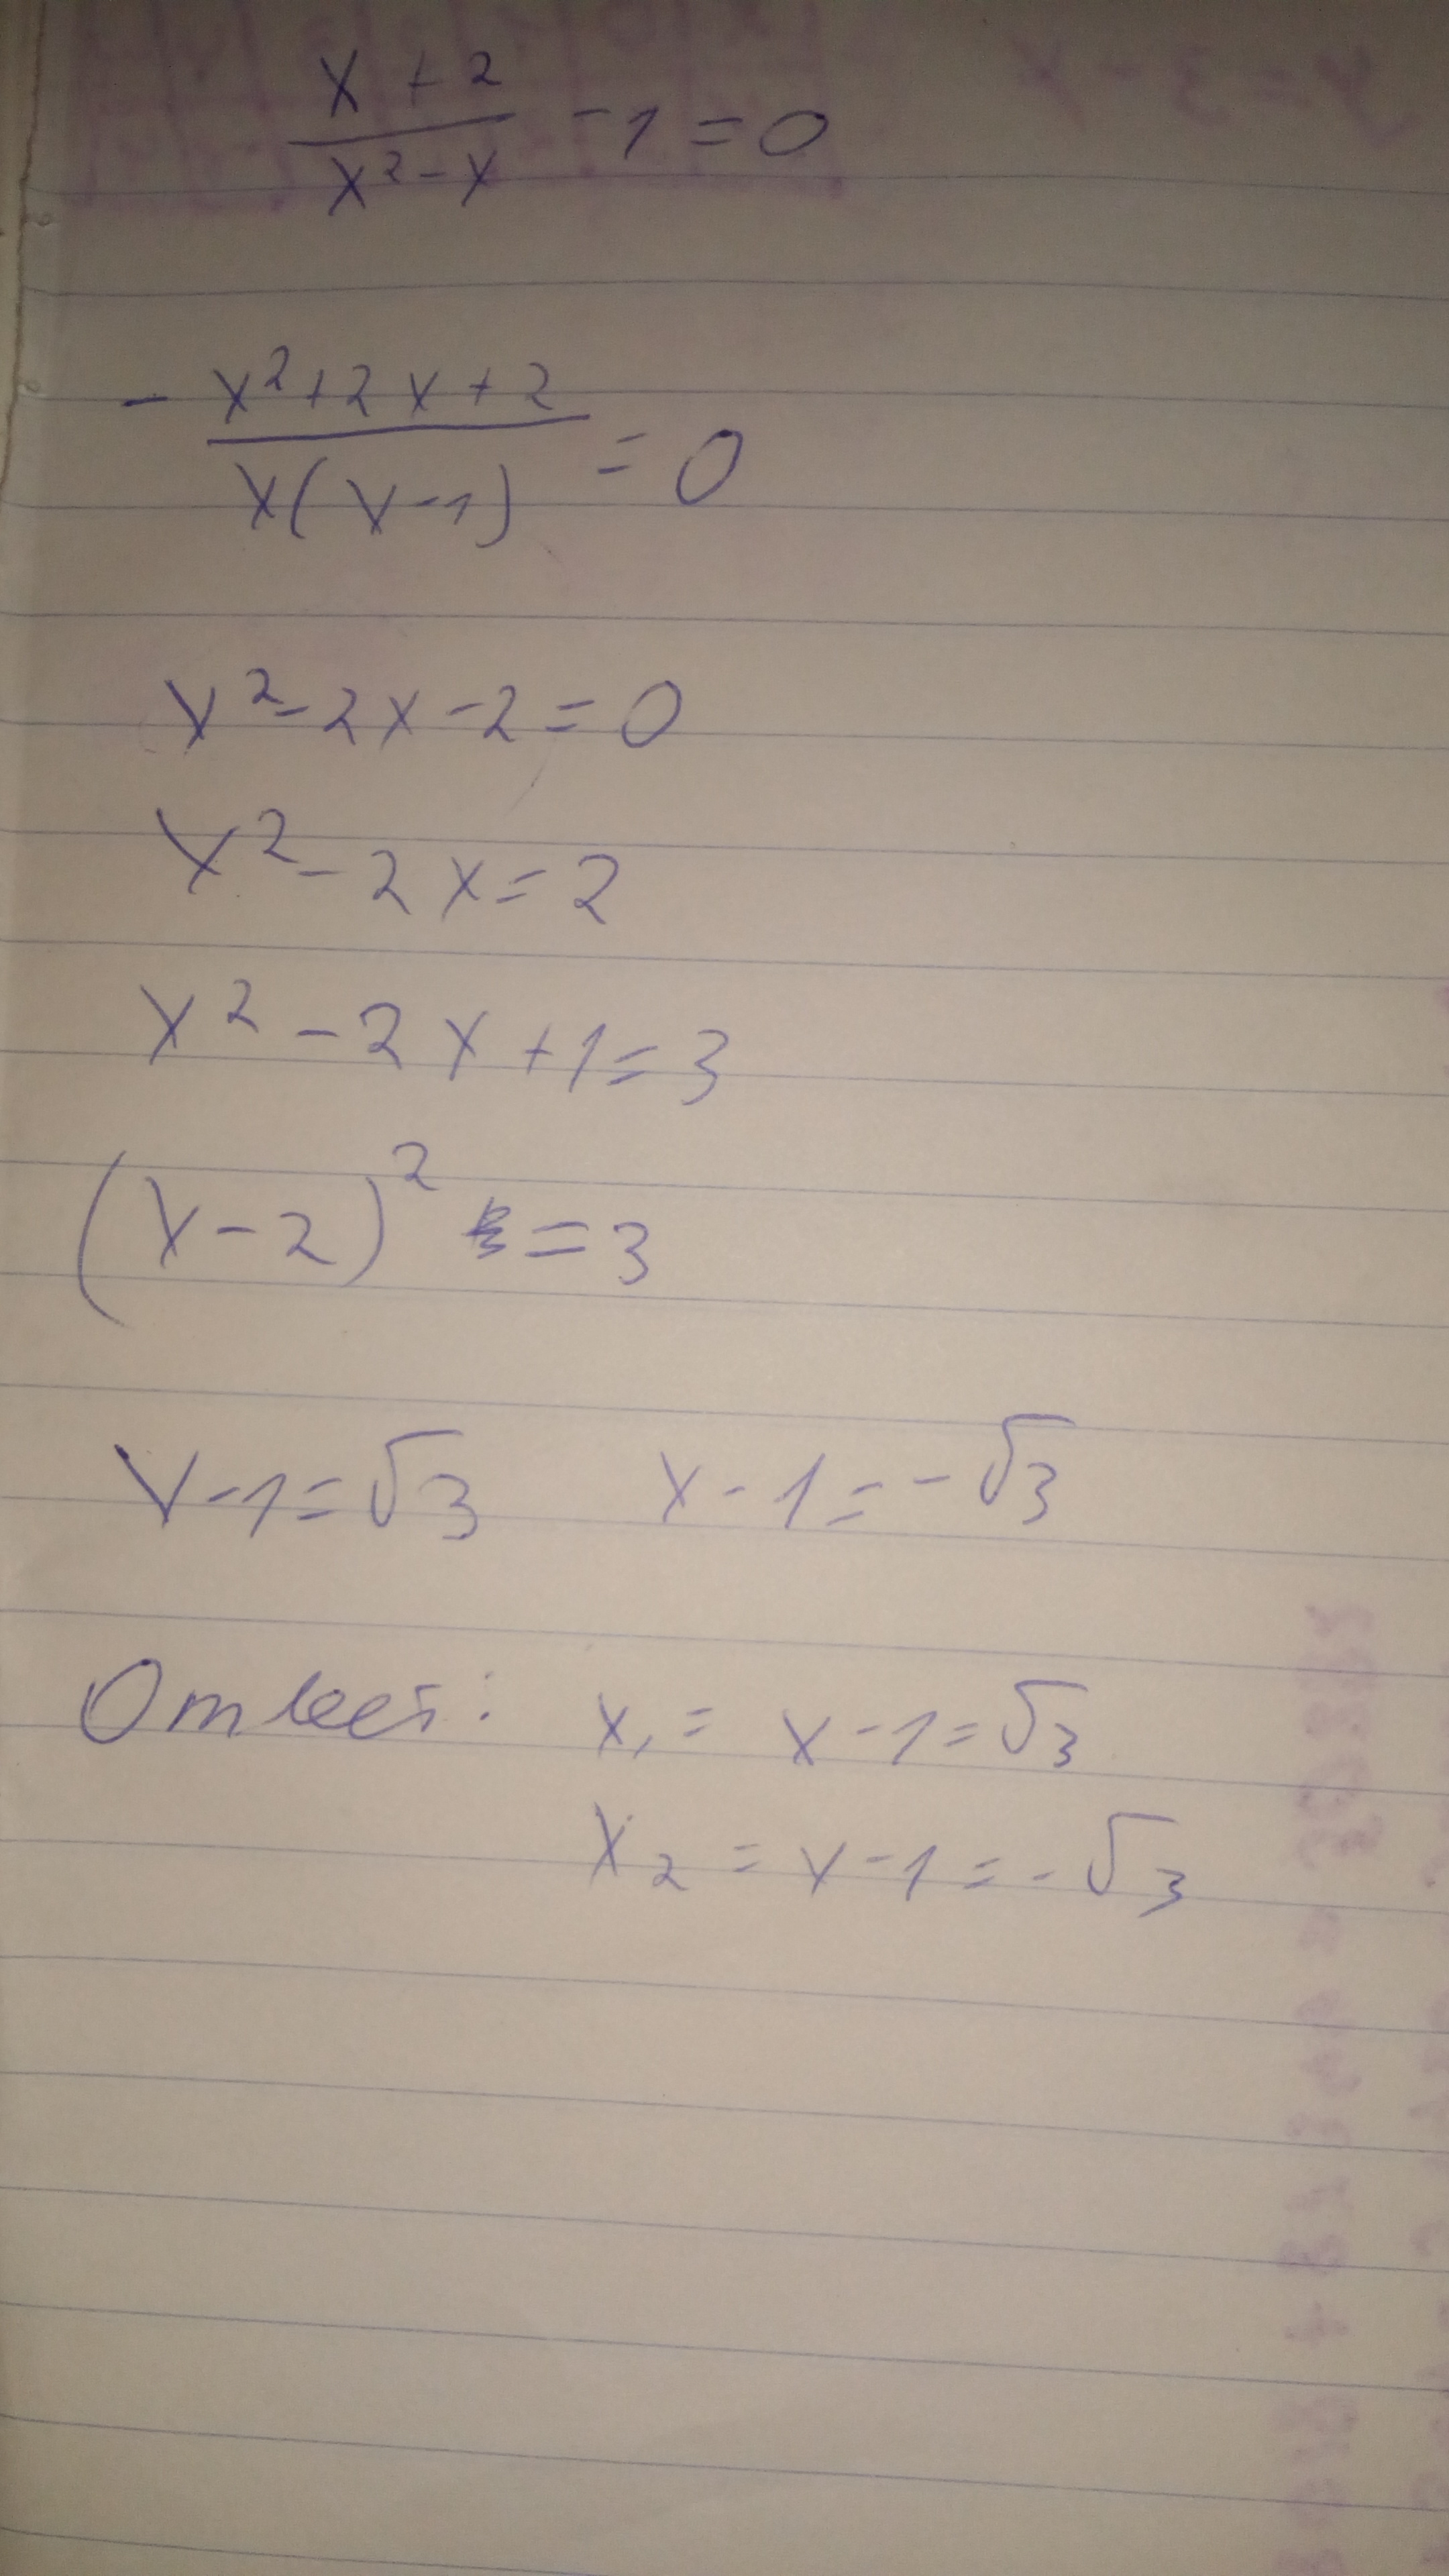 x + 2
x² - x
- 1 = 0
- x² + 2x + 2
x(x-1)
= 0
x² - 2x - 2 = 0
x² - 2x = 2
x² - 2x + 1 = 3
(x - 2)² = 3
x - 1 = √3 x - 1 = - √3
Ответ: x₁ = x - 1 = √3
x₂ = x - 1 = - √3